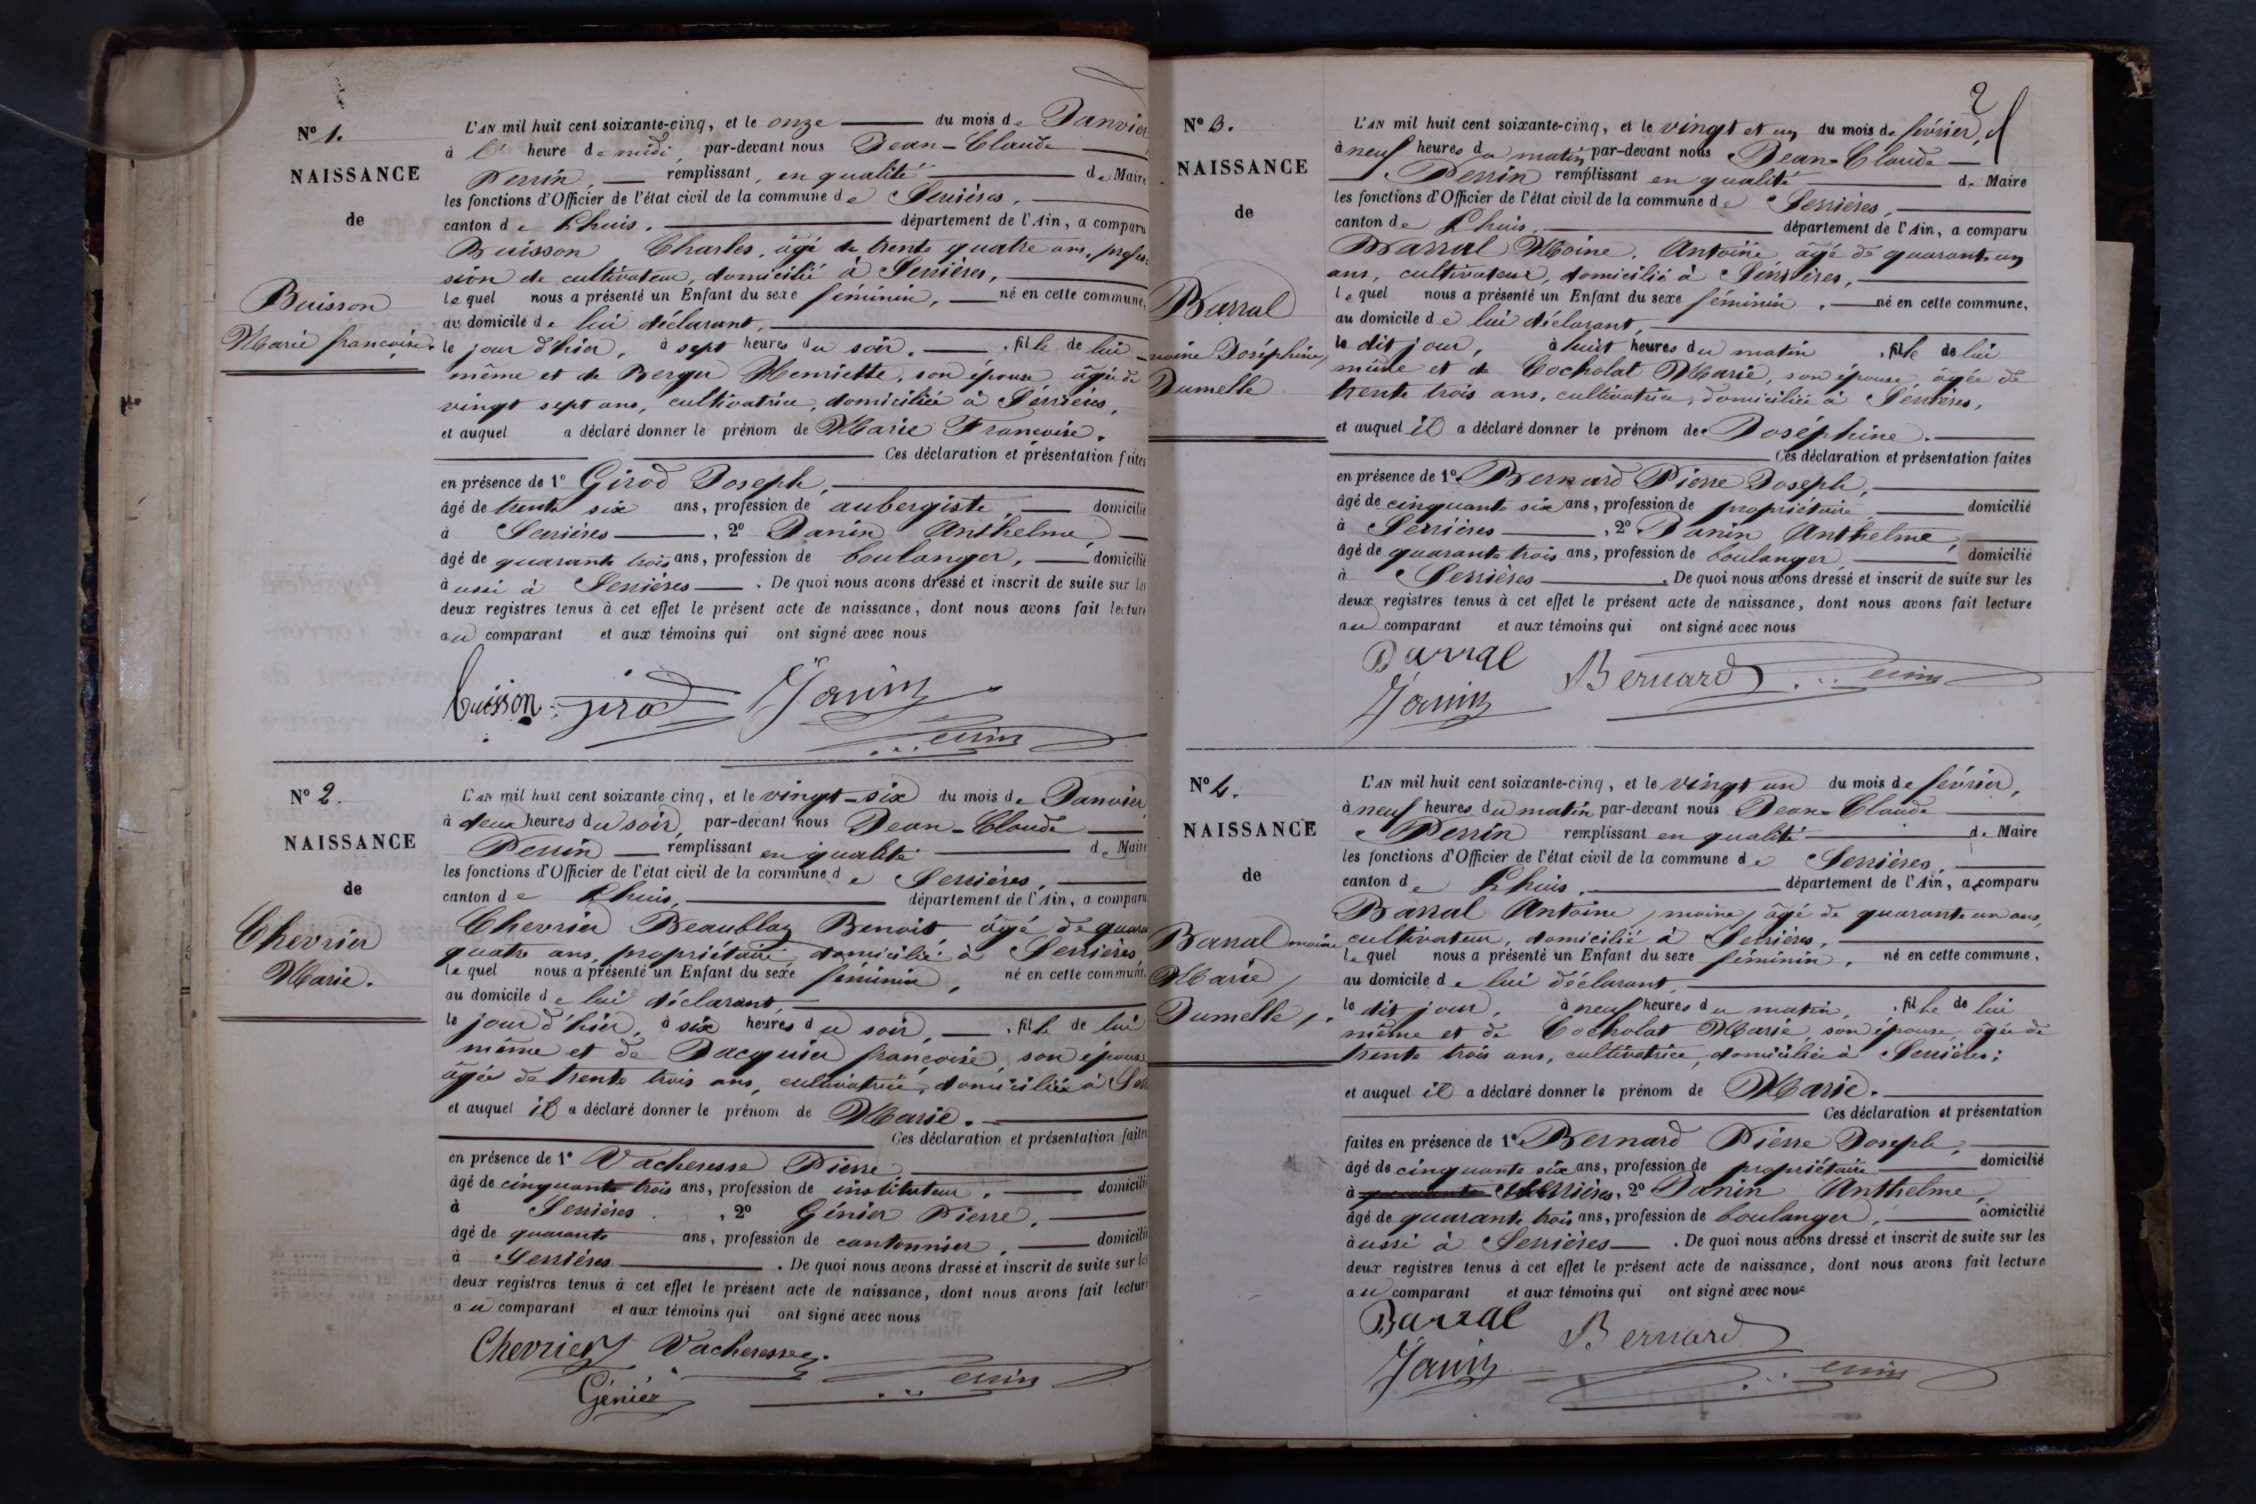 N° 1.
NAISSANCE
de
Buisson
Marie françoise.
L'AN mil huit cent soixante-cinq, et le onze du mois de Janvier
à heure de midi, par-devant nous Jean-Claude
Perrin, remplissant, en qualité de Maire
les fonctions d'Officier de l'état civil de la commune de Serrières,
canton de Lhuis. département de l'Ain, a comparu
Buisson Charles, âgé de trente quatre ans, profes-
sion de cultivateur, domicilié à Serrières,
lequel nous a présenté un Enfant du sexe féminin, né en cette commune,
au domicile de lui déclarant,
le jour d'hier, à sept heures du soir. , fille de lui
même et de Berger Henriette, son épouse, âgée de
vingt sept ans, cultivatrice, domiciliée à Serrières,
et auquel a déclaré donner le prénom de Marie Françoise.
Ces déclaration et présentation faites
en présence de 1° Girod Joseph,
âgé de trente six ans, profession de aubergiste, domicilié
à Serrières , 2° Janin Anthelme,
âgé de quarante trois ans, profession de boulanger, domicilié
aussi à Serrières . De quoi nous avons dressé et inscrit de suite sur les
deux registres tenus à cet effet le présent acte de naissance, dont nous avons fait lecture
au comparant et aux témoins qui ont signé avec nous
buisson girod Janin
Perrin
N° 2.
NAISSANCE
de
Chevrier
Marie.
L'AN mil huit cent soixante cinq, et le vingt-six du mois de Janvier
à deux heures du soir, par-devant nous Jean-Claude
Perrin remplissant en qualité de Maire
les fonctions d'Officier de l'état civil de la commune de Serrières,
canton de Lhuis, département de l'Ain, a comparu
Chevrier Beaublay Benoit âgé de quara
quatre ans, propriétaire, domicilié à Serrières,
lequel nous a présenté un Enfant du sexe féminin, né en cette commune,
au domicile de lui déclarant,
le jour d'hier, à six heures du soir, , fille de lui
même et de Jacquier françoise, son épouse
âgée de trente trois ans, cultivatrice, domiciliée à Ser
et auquel il a déclaré donner le prénom de Marie.
Ces déclaration et présentation faites
en présence de 1° Vacheresse Pierre
âgé de cinquante trois ans, profession de instituteur, domicilié
à Serrières , 2° Génier Pierre,
âgé de quarante ans, profession de cantonnier, domicilié
à Serrières . De quoi nous avons dressé et inscrit de suite sur les
deux registres tenus à cet effet le présent acte de naissance, dont nous avons fait lecture
au comparant et aux témoins qui ont signé avec nous
Chevrier Vacheresse
Génier Perrin
2
N° 3.
NAISSANCE
de
Barral
moine Joséphine,
Jumelle
L'AN mil huit cent soixante-cinq, et le vingt et un du mois de février,
à neuf heures du matin par-devant nous Jean-Claude
Perrin remplissant en qualité de Maire
les fonctions d'Officier de l'état civil de la commune de Serrières,
canton de Lhuis, département de l'Ain, a comparu
Barral Moine, Antoine, âgé de quarante un
ans, cultivateur, domicilié à Serrières,
lequel nous a présenté un Enfant du sexe féminin, né en cette commune,
au domicile de lui déclarant,
le dit jour, à huit heures du matin , fille de lui
même et de Cocholat Marie, son épouse, âgée de
trente trois ans, cultivatrice, domiciliée à Serrières,
et auquel il a déclaré donner le prénom de Joséphine.
Ces déclaration et présentation faites
en présence de 1° Bernard Pierre Joseph,
âgé de cinquante six ans, profession de propriétaire domicilié
à Serrières , 2° Janin Anthelme,
âgé de quarante trois ans, profession de boulanger, domicilié
à Serrières . De quoi nous avons dressé et inscrit de suite sur les
deux registres tenus à cet effet le présent acte de naissance, dont nous avons fait lecture
au comparant et aux témoins qui ont signé avec nous
Barral Bernard Perrin
Janin
N° 4.
NAISSANCE
de
Barral moine
Marie,
Jumelle,.
L'AN mil huit cent soixante-cinq, et le vingt un du mois de février,
à neuf heures du matin par-devant nous Jean-Claude
Perrin remplissant en qualité de Maire
les fonctions d'Officier de l'état civil de la commune de Serrières,
canton de Lhuis, département de l'Ain, a comparu
Barral Antoine, moine, âgé de quarante un ans,
cultivateur, domicilié à Serrières,
lequel nous a présenté un Enfant du sexe féminin, né en cette commune,
au domicile de lui déclarant,
le dit jour, à neuf heures du matin, , fille de lui
même et de Cocholat Marie, son épouse, âgée de
trente trois ans, cultivatrice, domiciliée à Serrières;
et auquel il a déclaré donner le prénom de Marie.
Ces déclaration et présentation
faites en présence de 1° Bernard Pierre Joseph,
âgé de cinquante six ans, profession de propriétaire domicilié
à quarante Serrières, 2° Janin Anthelme,
âgé de quarante trois ans, profession de boulanger, domicilié
aussi à Serrières . De quoi nous avons dressé et inscrit de suite sur les
deux registres tenus à cet effet le présent acte de naissance, dont nous avons fait lecture
au comparant et aux témoins qui ont signé avec nous
Barral Bernard
Janin Perrin